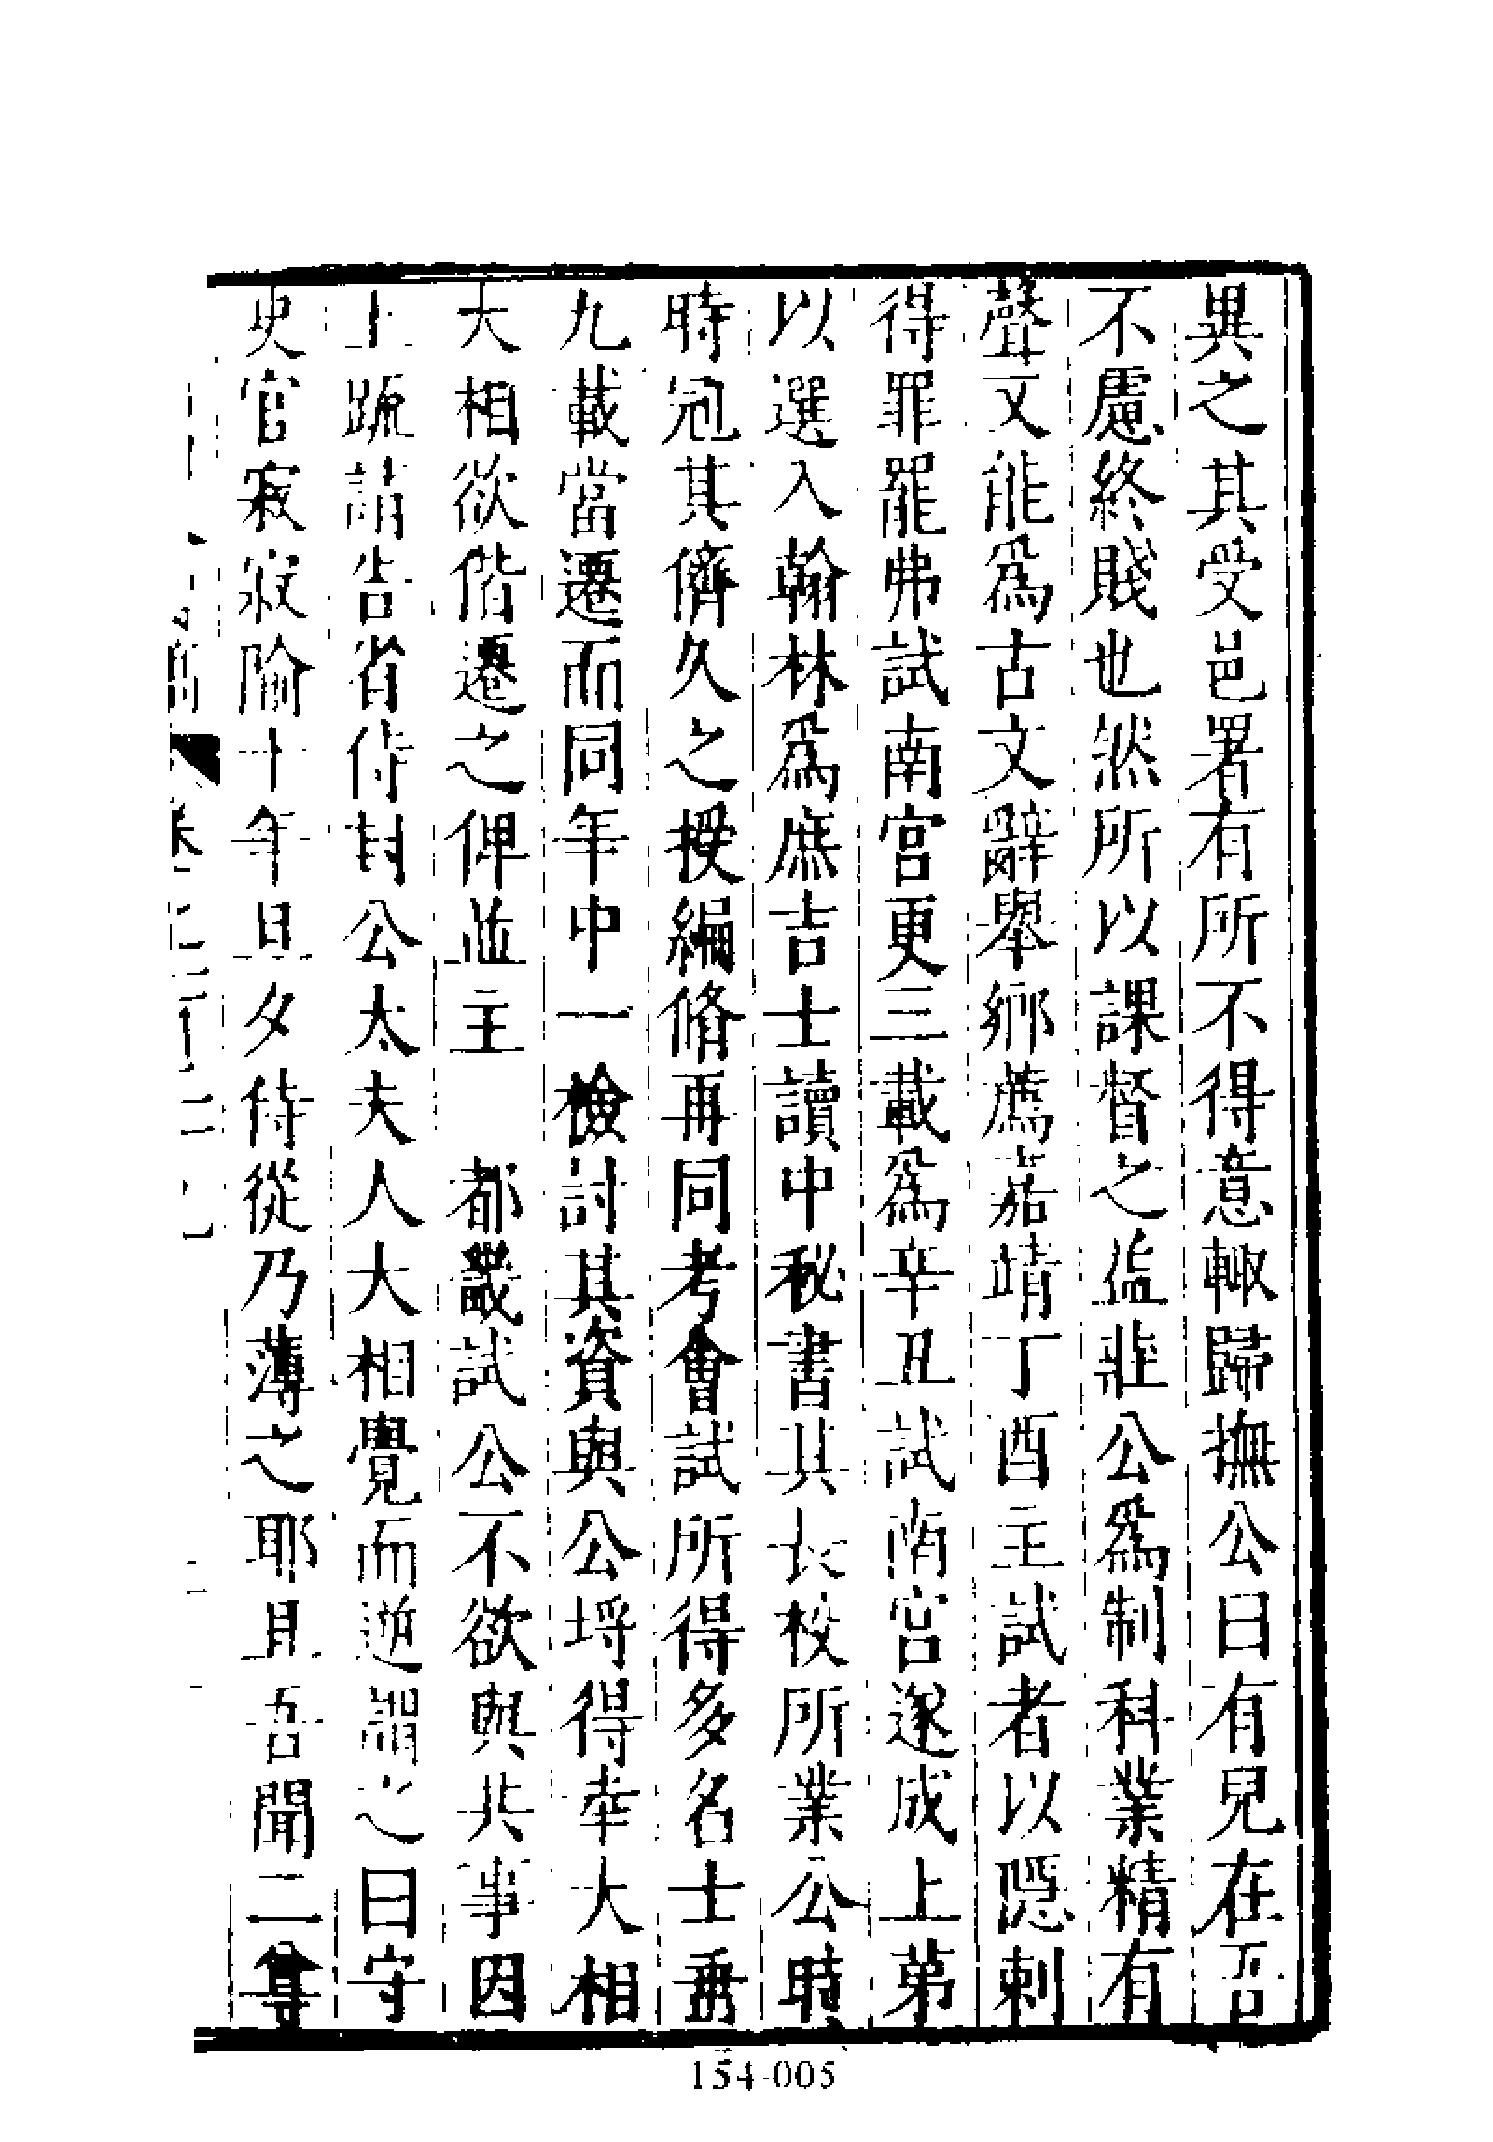 異之其受邑署有所不得意輙歸撫公曰有兒在吾
不慮終賤也然所以課督之益韭公爲制科業精有
聲文能爲古文辭舉鄉薦嘉靖丁酉主試者以隱刺
得罪罷弗試南宮更三載爲辛丑試南宮遂成上第
以選入翰林爲庶吉士讀中秘書其長校所業公時
時冠其儕久之授編脩再同考會試所得多名士垂
九載當遷而同年中一檢討其資與公埒得幸大相
大相欲偕遷之俾並主　都畿試公不欲與共事因
上疏請告省侍封公太夫人大相覺而逆謂之曰守
史官寂寂隃十年旦夕侍從乃薄之耶且吾聞二尊
154-005